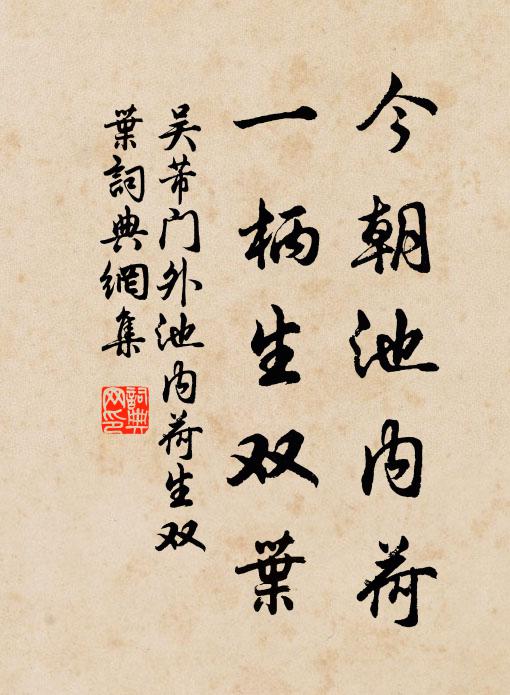 今朝池内荷
一柄生双葉
吴芾门外池内荷生双
葉詞典網集
詞典網印